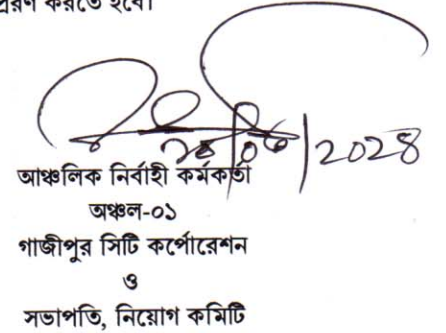 করতে হবে।
আঞ্চলিক নির্বাহী কর্মকর্তা
অঞ্চল-০১
গাজীপুর সিটি কর্পোরেশন
ও
সভাপতি, নিয়োগ কমিটি